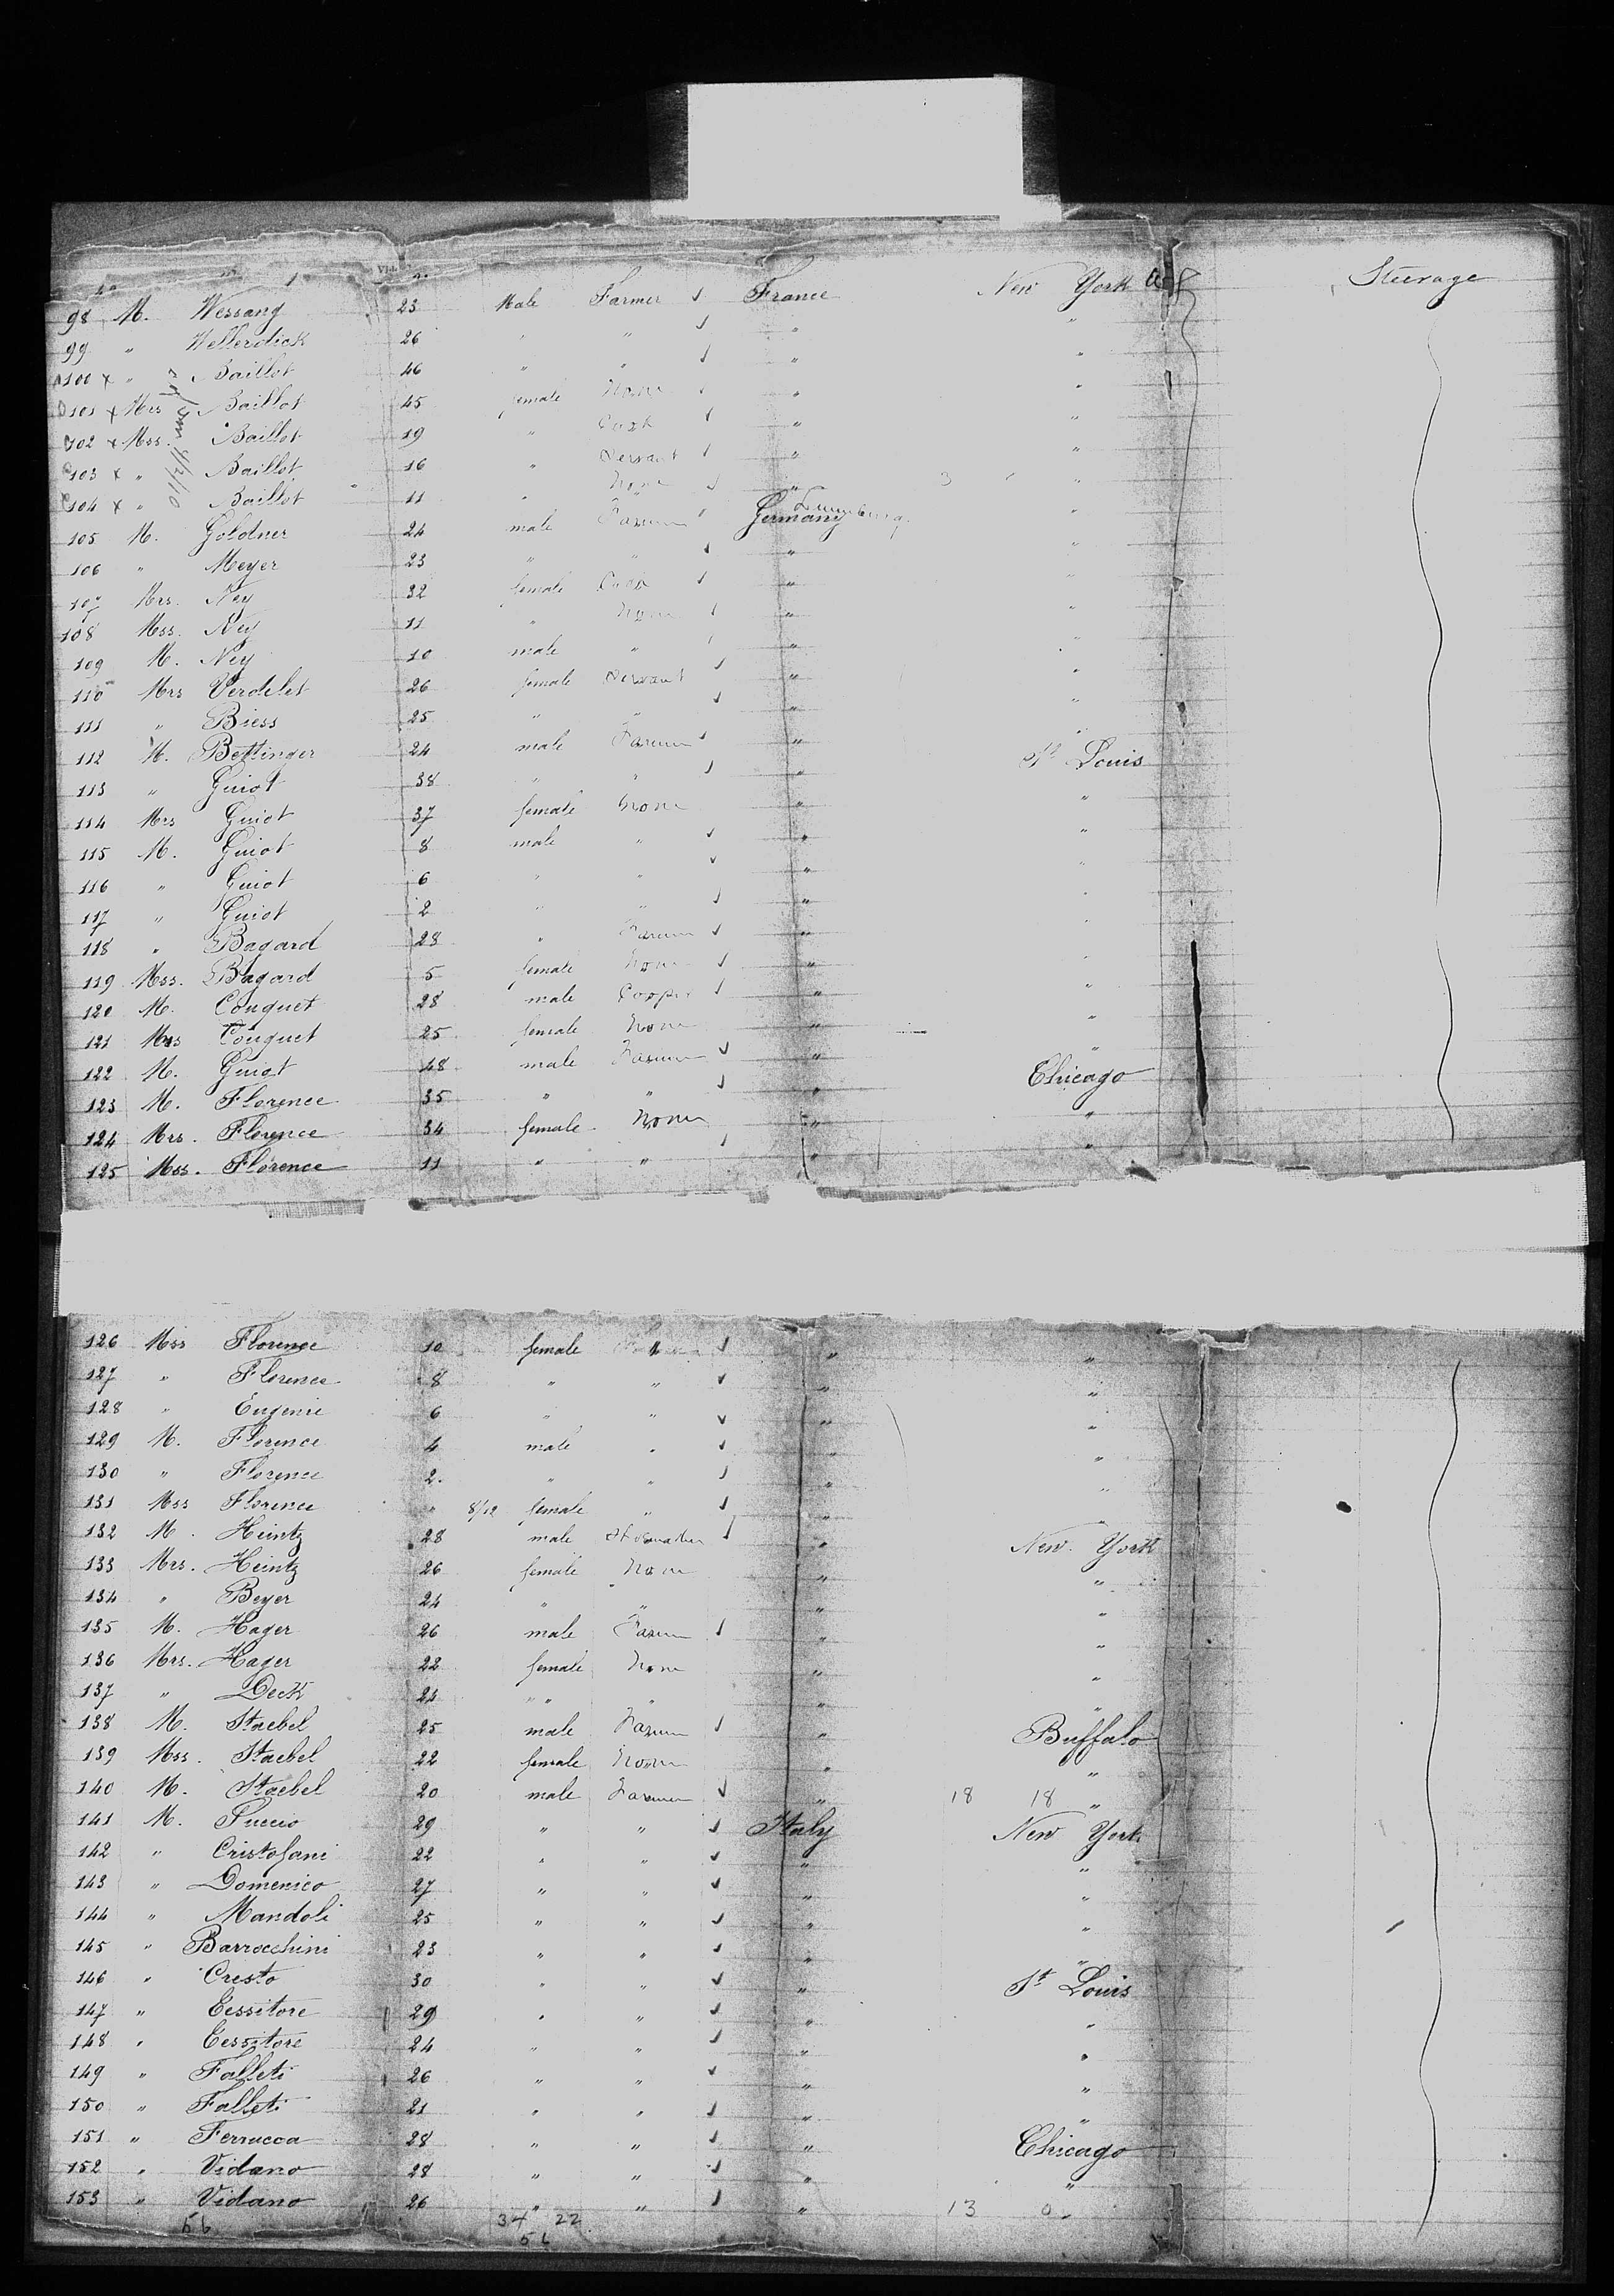 98 M. Wessang 23 Male Farmer ✓ France New York Steerage
99 " Wellerdick 26 " " ✓ " "
100 x " Baillot 46 " " ✓ " "
101 x Mrs Baillot 45 female None ✓ " "
102 x Mss. Baillot 19 " Cook ✓ " "
103 x " Baillot 16 " Servant ✓ " "
104 x " Baillot 11 " None ✓ " 3 "
105 M. Goldner 24 male Farmer ✓ Germany "
106 " Meyer 23 " " ✓ " "
107 Mrs. Ney 32 female Cook ✓ " "
108 Mss. Ney 11 " None ✓ " "
109 M. Ney 10 male " ✓ " "
110 Mrs Verdelet 26 female Servant ✓ " "
111 " Biess 25 " " ✓ " "
112 M. Bettinger 24 male Farmer ✓ " St Louis
113 " Guiot 38 " " ✓ " "
114 Mrs Guiot 37 female None " "
115 M. Guiot 8 male " ✓ " "
116 " Guiot 6 " " ✓ " "
117 " Guiot 2 " " ✓ " "
118 " Bagard 28 " Farmer ✓ " "
119 Mss. Bagard 5 female None ✓ " "
120 M. Couquet 28 male Cooper ✓ " "
121 Mrs Couquet 25 female None " "
122 M. Guiot 48 male Farmer ✓ " Chicago
123 M. Florence 35 " " ✓ " "
124 Mrs. Florence 34 female None " "
125 Mss. Florence 11 " " ✓ "
126 Mss Florence 10 female " ✓ " "
127 " Florence 8 " " ✓ " "
128 " Eugenie 6 " " ✓ " "
129 M. Florence 4 male " ✓ " "
130 " Florence 2. " " ✓ " "
131 Mss Florence " 8/12 female " ✓ " "
132 M. Heintz 28 male Shoemaker ✓ " New York
133 Mrs. Heintz 26 female None " "
134 " Beyer 24 " " " "
135 M. Hager 26 male Farmer ✓ " "
136 Mrs. Hager 22 female None " "
137 " Deck 24 " " " "
138 M. Staebel 25 male Farmer ✓ " Buffalo
139 Mss. Staebel 22 female None " "
140 M. Staebel 20 male Farmer ✓ " 18 18 "
141 M. Succio 29 " " ✓ Italy New York
142 " Cristofani 22 " " ✓ " "
143 " Domenico 27 " " ✓ " "
144 " Mandoli 25 " " ✓ " "
145 " Barrocchini 23 " " ✓ " "
146 " Cresto 30 " " ✓ " St Louis
147 " Cessitore 29 " " ✓ " "
148 " Cessitore 24 " " ✓ " "
149 " Falleti 26 " " ✓ " "
150 " Falleti 21 " " ✓ " "
151 " Ferrucca 28 " " ✓ " Chicago
152 " Vidano 28 " " ✓ " "
153 " Vidano 26 " " ✓ " 13 0
56 34 22
56